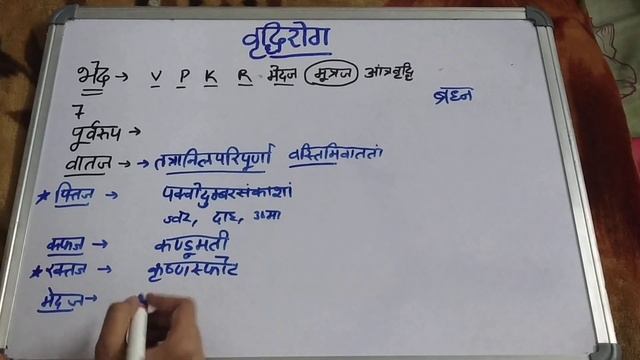 वृद्धिरोग
भेद → V P K R मेदज मूत्रज आंत्रवृद्धि
ब्रध्न
7
पूर्वरूप →
वातज → → तत्रानिलपरिपूर्णां वस्तिमिवाततां
* पित्तज → पक्वोदुम्बरसंकाशां
ज्वर, दाह,
कफज → कण्डूमती
* रक्तज → कृष्णस्फोट
मेदज →